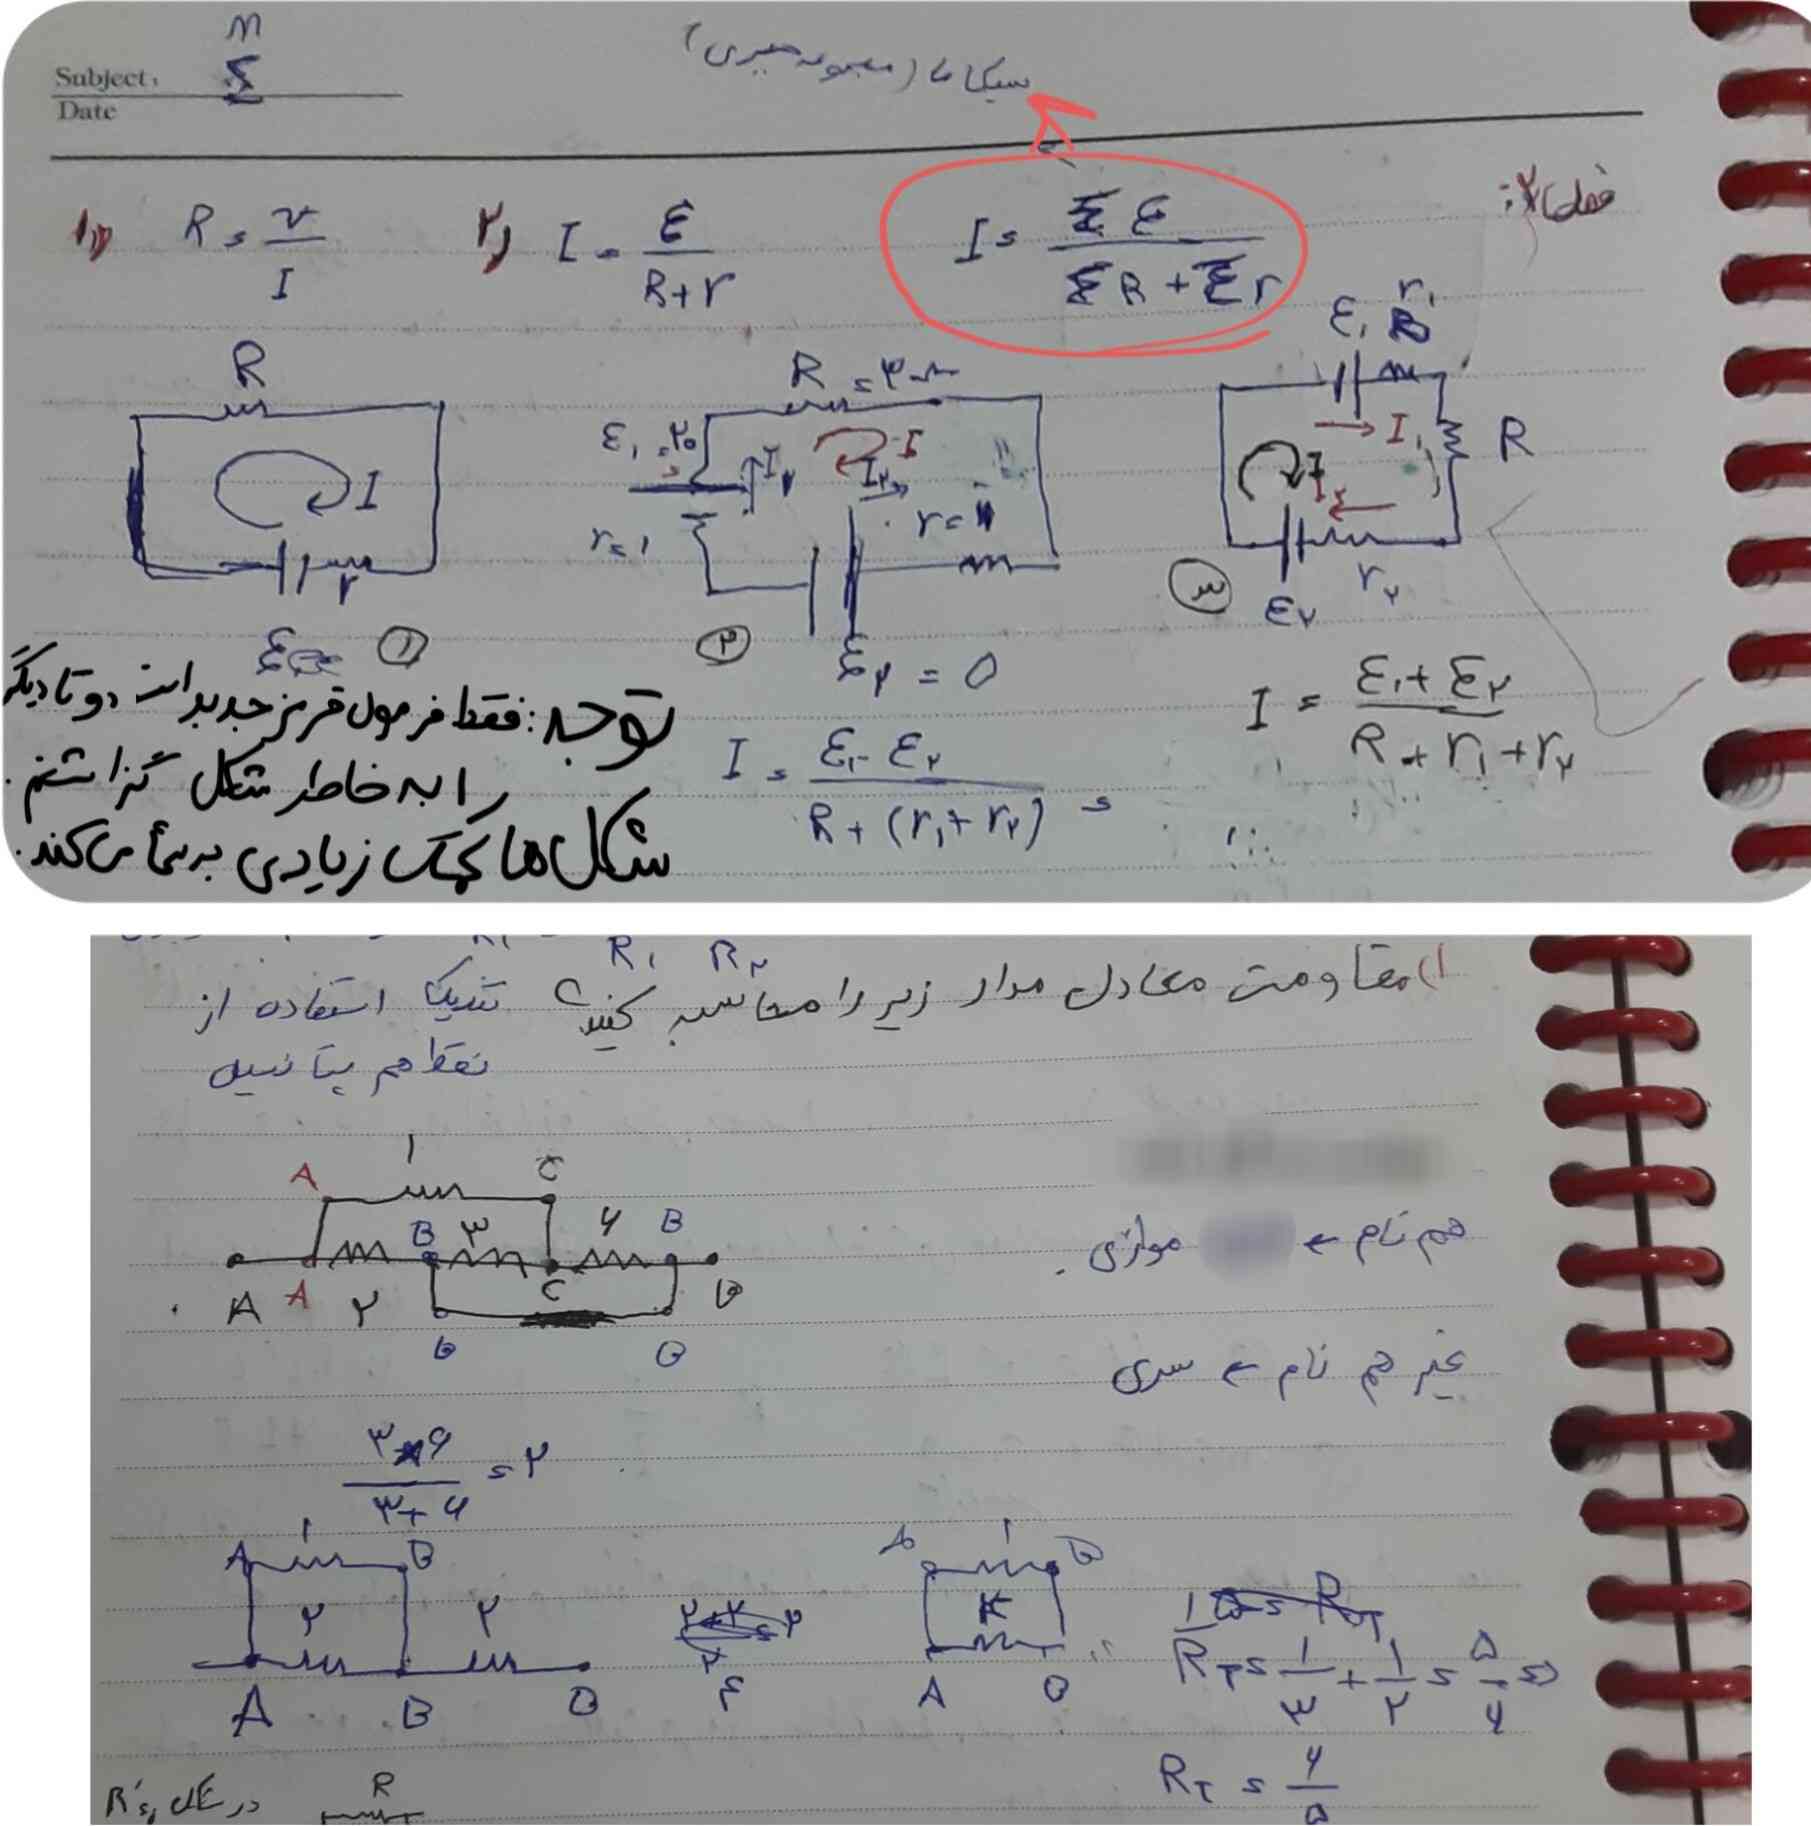 Subject:
Date
سیگما (مجموعه جبری)
فصل ۲:
۱) R = V / I
۲) I = ε / R+r
I = Σε / ΣR + Σr
R
I
r
ε
①
R = ۳
ε₁ = ۲۰
I
I₂
r = ۱
r = 
②
ε₂ = 0
I = ε₁ - ε₂ / R + (r₁ + r₂) =
ε₁ r₁
I₁
R
I
r₂
ε₂
③
I = ε₁ + ε₂ / R + r₁ + r₂
توجه: فقط فرمول قرمز جدید است دو تا دیگر
را به خاطر شکل گذاشتم.
شکل ها کمک زیادی به شما می کند.
R₁ R₂
۱) مقاومت معادل مدار زیر را محاسبه کنید؟ تکنیک استفاده از
نقاط هم پتانسیل
A ۱ C
B ۳ ۶ B
A A ۲ C B
B B
هم نام ← موازی.
غیر هم نام ← سری
۳×۶ / ۳+۶ = ۲
A ۱ B
۲ ۲
A B B
A ۱ B
A B
1/R_T = ۱/۳ + ۱/۲ = ۵/۶ ⇒
R_T = ۶/۵
در شکل
R